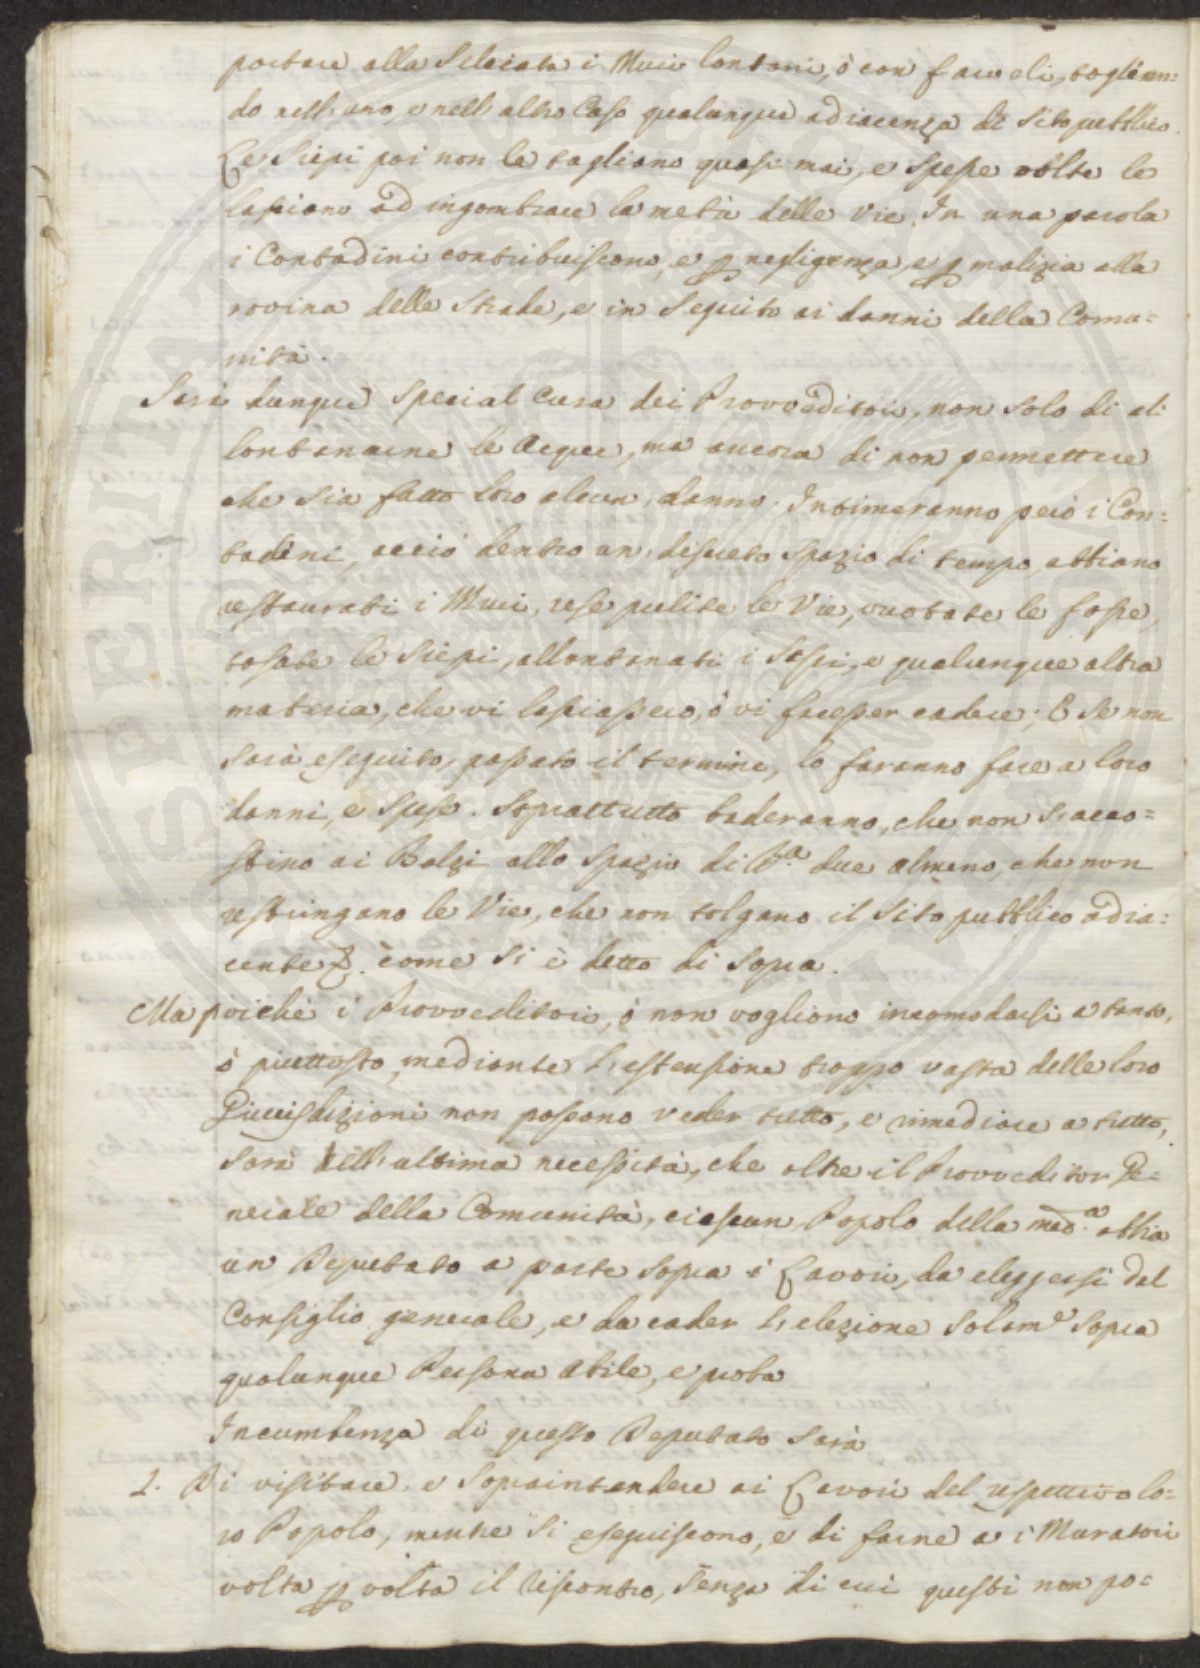 portare alla Selciata i Muri lontani, ò con farveli, toglien=
do nell'uno, e nell'altro Caso qualunque adiacenza di Sito pubblico.
Le Siepi poi non le tagliano quasi mai, e Spesse volte le
lasciano ad ingombrare la metà delle Vie. In una parola
i Contadini contribuiscono, e p negligenza, e p malizia alla
rovina delle Strade, e in Seguito ai danni della Comu=
nità.
Sarà dunque Special Cura dei Provveditori, non solo di al
lontanarne le Acque, ma ancora di non permettere
che Sia fatto loro alcun danno. Intimeranno però i Con=
tadini, acciò dentro un discreto Spazio di tempo, abbiano
restaurati i Muri, rese pulite le Vie, vuotate le fosse,
tosate le Siepi, allontanati i Sassi, e qualunque altra
materia, che vi lasciassero, ò vi facesser cadere; E Se non
sarà eseguito, passato il termine, lo faranno fare a loro
danni, e Spese. Soprattutto baderanno, che non S'acco=
stino ai Balzi allo Spazio di B.a due almeno, che non
restringano le Vie, che non tolgano il Sito pubblico adia=
cente &. come Si è detto di Sopra.
Ma poichè i Provveditori, ò non vogliono incomodarsi a tanto,
ò piuttosto, mediante l'estensione troppo vasta delle loro
Giurisdizioni non possono veder tutto, e rimediare a tutto,
Sarà dell'ultima necessità, che oltre il Provveditor Ge=
nerale della Comunità, ciascun Popolo della med.a abbia
un Deputato a parte Sopra i Lavori, da eleggersi dal
Consiglio generale, e da cader l'elezione Solam.e Sopra
qualunque Persona Abile, e proba
Incumbenza di questo Deputato Sarà
1. Di visitare, e Sopraintendere ai Lavori del respettivo lo=
ro Popolo, mentre Si eseguiscono, e di farne a i Muratori
volta p volta il riscontro, Senza di cui questi non po=